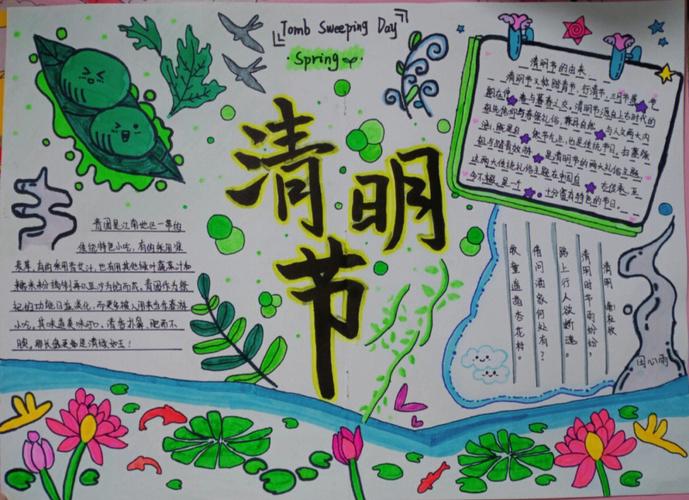 Tomb Sweeping Day
Spring
清明节
清明节的由来
清明节又叫踏青节、行清节、三月节 节
期在仲春与暮春之交。清明节源自上古时代的
祖先信仰与春祭礼俗,兼具自然与人文两大内
涵,既是自 节气点,也是传统节日,扫墓祭
祖与踏青郊游是清明节的两大礼俗主题,
这两大传统礼俗主题在中国自古传承,至
今不辍,是一个十分富有特色的节日。
青团是江南地区一带的
传统特色小吃,有的采用浆
麦草,有的采用青艾汁,也有用其他绿叶蔬菜汁和
糯米粉捣制再以豆沙为馅而成,青团作为祭
祀的功能日益淡化,而更多被人用来当春游
小吃,其味道美味可口,清香扑鼻,肥而不
腴,
清明 杜牧
清明时节雨纷纷,
路上行人欲断魂。
借问酒家何处有?
牧童遥指杏花村。
田心雨